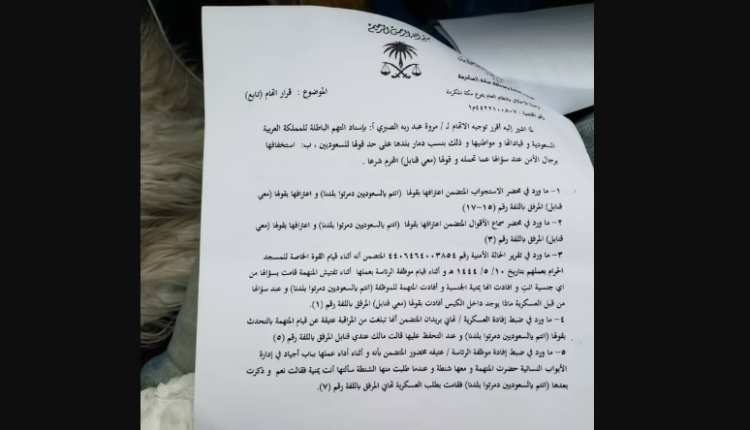 بسم الله الرحمن الرحيم
الموضوع : قرار اتهام (تابع)
لما اشير إليه أقرر توجيه الاتهام لـ / مروة عبد ربه الصبري أ: بإسناد التهم الباطلة للمملكة العربية
السعودية و قياداتها و مواطنيها و ذلك بنسب دمار بلدها على حد قولها للسعوديين ، ب: استخفافها
برجال الأمن عند سؤالها عما تحمله و قولها (معي قنابل) المحرم شرعا .
١– ما ورد في محضر الاستجواب المتضمن اعترافها بقولها (انتم بالسعوديين دمرتوا بلدنا) و اعترافها بقولها (معي
قنابل) المرفق باللفة رقم (١٥–١٧)
٢– ما ورد في محضر سماع الأقوال المتضمن اعترافها بقولها (انتم بالسعوديين دمرتوا بلدنا) و اعترافها بقولها (معي
قنابل) المرفق باللفة رقم (٣)
٣– ما ورد في تقرير الحالة الأمنية رقم ٤٤٠٦٤٦٤٠٠٣٨٥٤ المتضمن أنه أثناء قيام القوة الخاصة للمسجد
الحرام بعملهم بتاريخ ١٠/ ٥/ ١٤٤٤ هـ و أثناء قيام موظفة الرئاسة بعملها أثناء تفتيش المتهمة قامت بسؤالها من
اي جنسية انت و افادت انها يمنية الجنسية و أفادت المتهمة للموظفة (انتم بالسعوديين دمرتوا بلدنا) و عند سؤالها
من قبل العسكرية ماذا يوجد داخل الكيس أفادت بقولها (معي قنابل) المرفق باللفة رقم (١).
٤– ما ورد في ضبط إفادة العسكرية / تهاني بريدان المتضمن أنها تبلغت من المراقبة عتيقة عن قيام المتهمة بالتحدث
بقولها (انتم بالسعوديين دمرتوا بلدنا) و عند التحفظ عليها قالت مالك عندي قنابل المرفق باللفة رقم (٥)
٥– ما ورد في ضبط إفادة موظفة الرئاسة / عتيقه محضور المتضمن بأنه و أثناء أداء عملها بباب أجياد في إدارة
الأبواب النسائية حضرت المتهمة و معها شنطة و عندما طلبت منها الشنطة سألتها أنت يمنية فقالت نعم و ذكرت
بعدها (انتم بالسعوديين دمرتوا بلدنا) فقامت بطلب العسكرية تهاني المرفق باللفة رقم (٧).